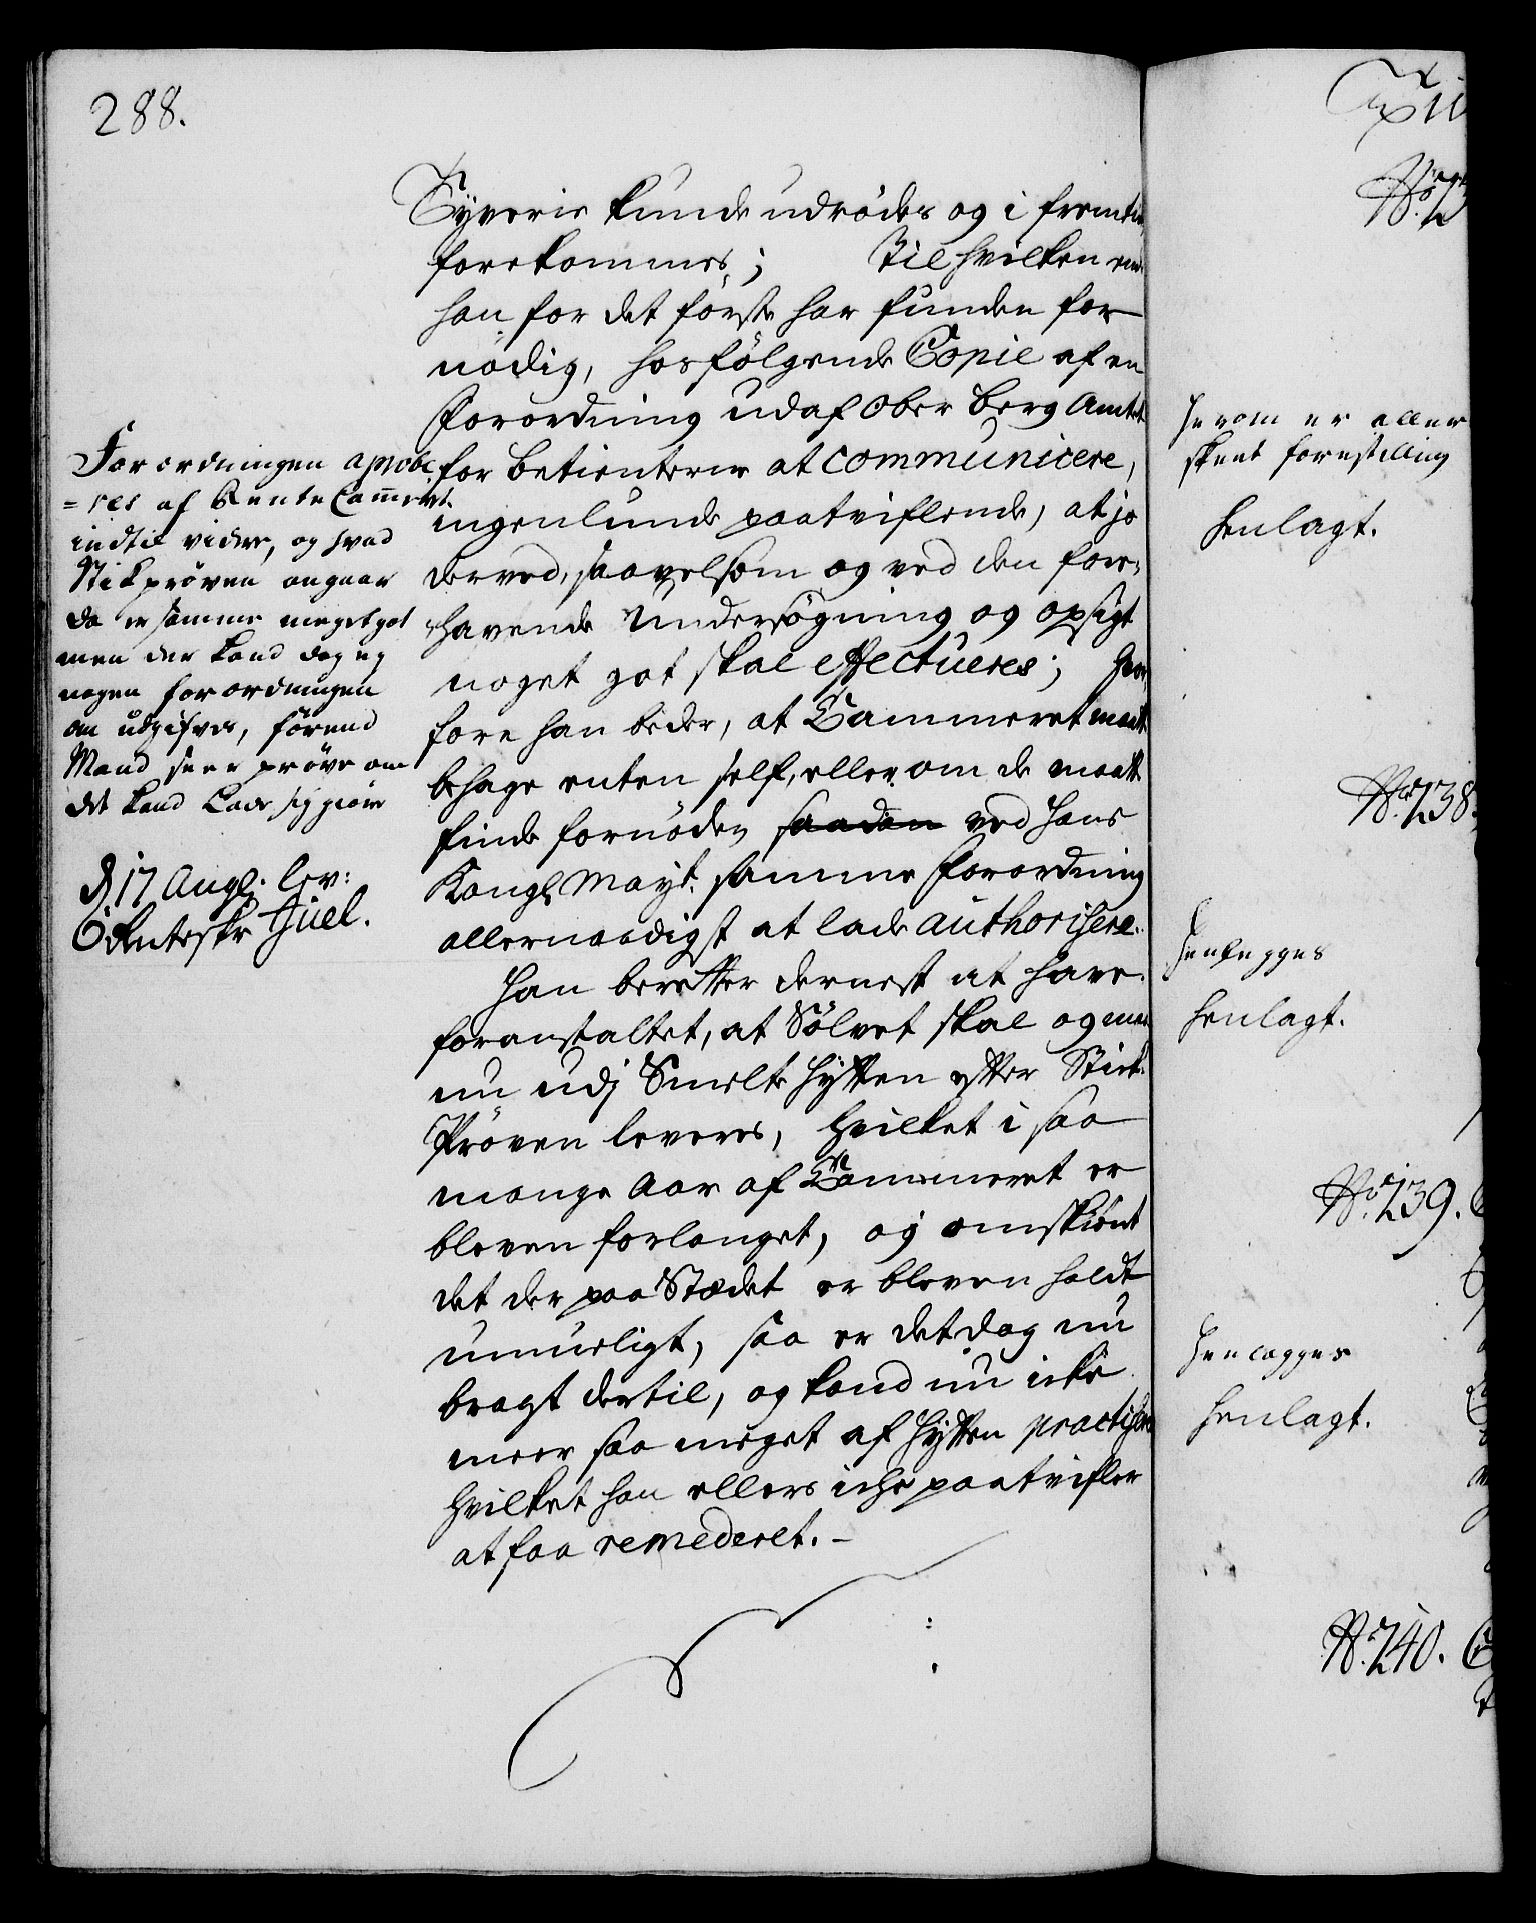 288.
Tyverie kunde udrødes og i fremtiden
forekommes; Til hvilken ende
han for det første har funden for
nödig, hosfölgende Copie af en
Forordning udaf Ober Berg Amtet
for betienterne at communicere,
ingenlunde paatviflende, at jo
derved, saavelsom og ved den fore,
havende Undersøgning og opsigt
noget got skal effectueres; hvor,
fore han beder, at Cammeret maatte
behage enten self, eller om de maatte
finde fornöden saadan ved Hans
Kongl. Mayt. samme Forordning
allernaadigst at lade authorisere.
Han beretter dernest at have
foranstaltet, at Sölvet skal og maa
nu udj Smelte Hytten efter Stick-
Pröven leveres, hvilket i saa
mange Aar af Cammeret er
bleven forlanget, og omskiönt
det der paa Stædet er bleven holdt
umueligt, saa er det dog nu
bragt dertil, og kand nu icke
meer saa meget af Hytten practiseres
hvilket han ellers iche paatvifler
at faa remederet. -
Forordningen aprobe
=res af RenteCammeret
indtil videre, og hvad
Stickpröven angaar
da er samme meget got
men der kand dog ey
nogen forordningen
om udgifves, förend
Mand seer pröve om
det kand Lade sig giøre
d 17 Aug. lev:
Renteskr Juel.
herom er aller
skeet forestilling
henlagt.
No. 238.
henlegges
henlagt.
No. 239.
henlegges
henlagt.
No. 240.